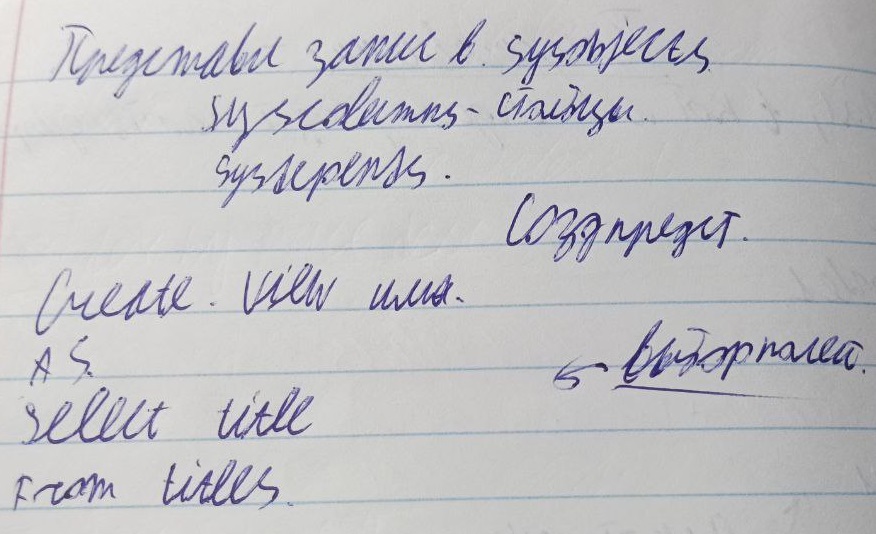 Представл запис в. sysobjects
syscolumns - столбцы.
sysdepents.
Созд предст.
Create. View имя.
AS.
Select title
← выбор полей.
From titles.